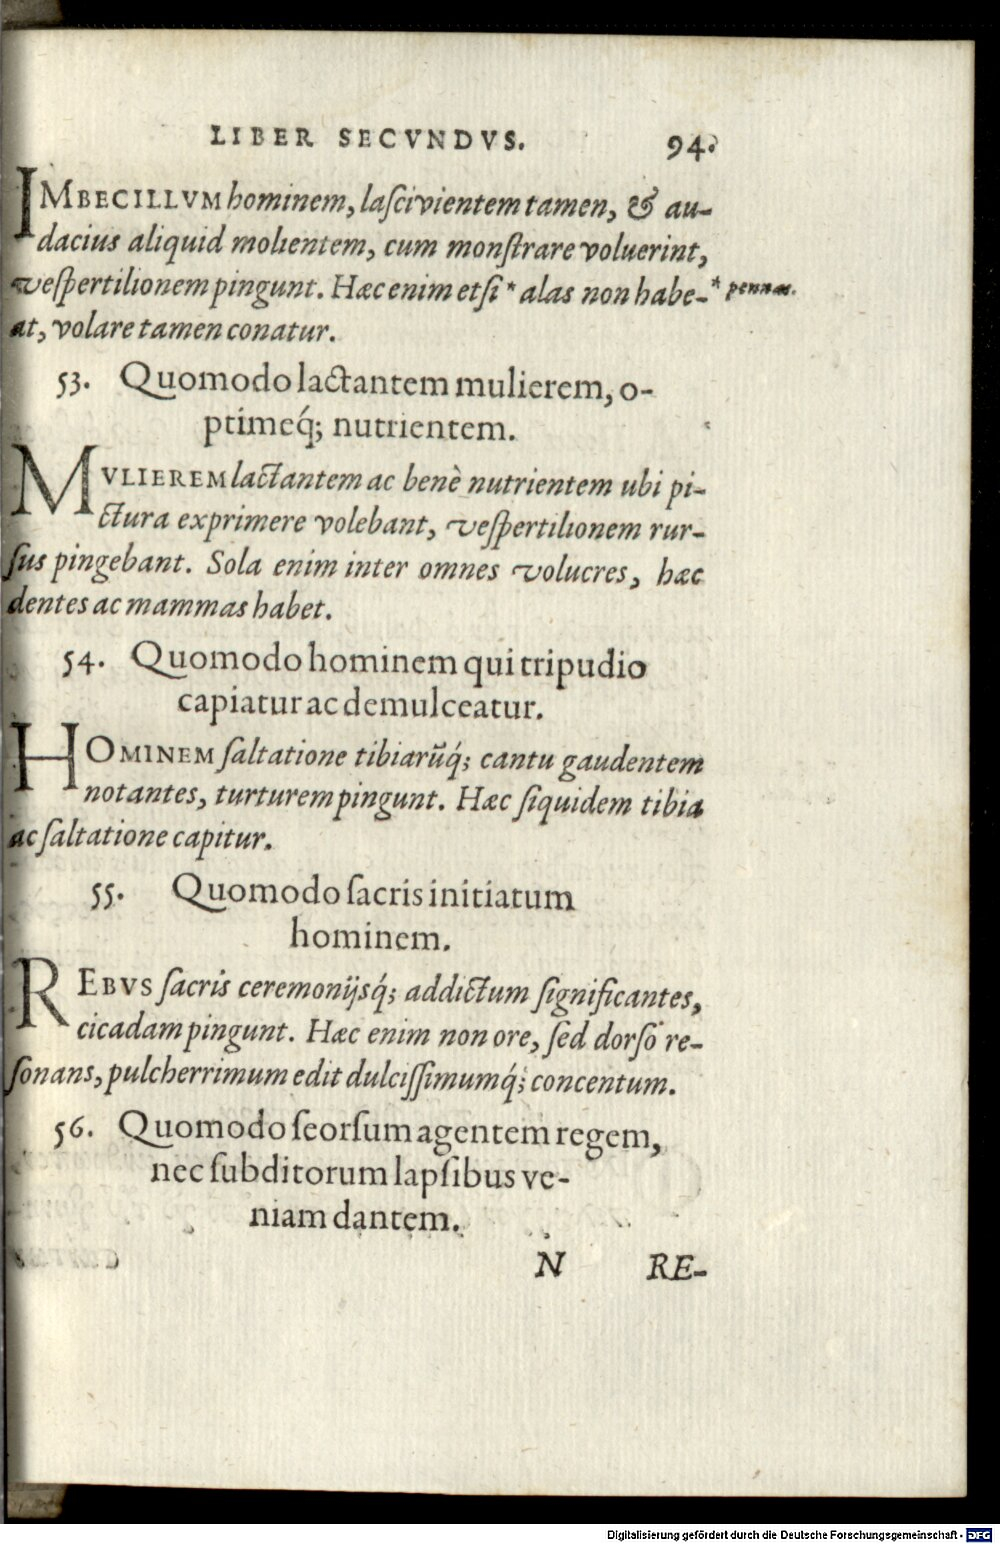 LIBER SECVNDVS. 94.
IMBECILLVM hominem, laſcivientem tamen, & au-
dacius aliquid molientem, cum monſtrare voluerint,
veſpertilionem pingunt. Hæc enim etſi * alas non habe- * pennas.
at, volare tamen conatur.
53. Quomodo lactantem mulierem, o-
ptimeq́; nutrientem.
MVLIEREM lactantem ac benè nutrientem ubi pi-
ctura exprimere volebant, veſpertilionem rur-
ſus pingebant. Sola enim inter omnes volucres, hæc
dentes ac mammas habet.
54. Quomodo hominem qui tripudio
capiatur ac demulceatur.
HOMINEM ſaltatione tibiarũq́; cantu gaudentem
notantes, turturem pingunt. Hæc ſiquidem tibia
ac ſaltatione capitur.
55. Quomodo ſacris initiatum
hominem.
REBVS ſacris ceremonijsq́; addictum ſignificantes,
cicadam pingunt. Hæc enim non ore, ſed dorſo re-
ſonans, pulcherrimum edit dulciſſimumq́; concentum.
56. Quomodo ſeorſum agentem regem,
nec ſubditorum lapſibus ve-
niam dantem.
N RE-
Digitalisierung gefördert durch die Deutsche Forschungsgemeinschaft - DFG